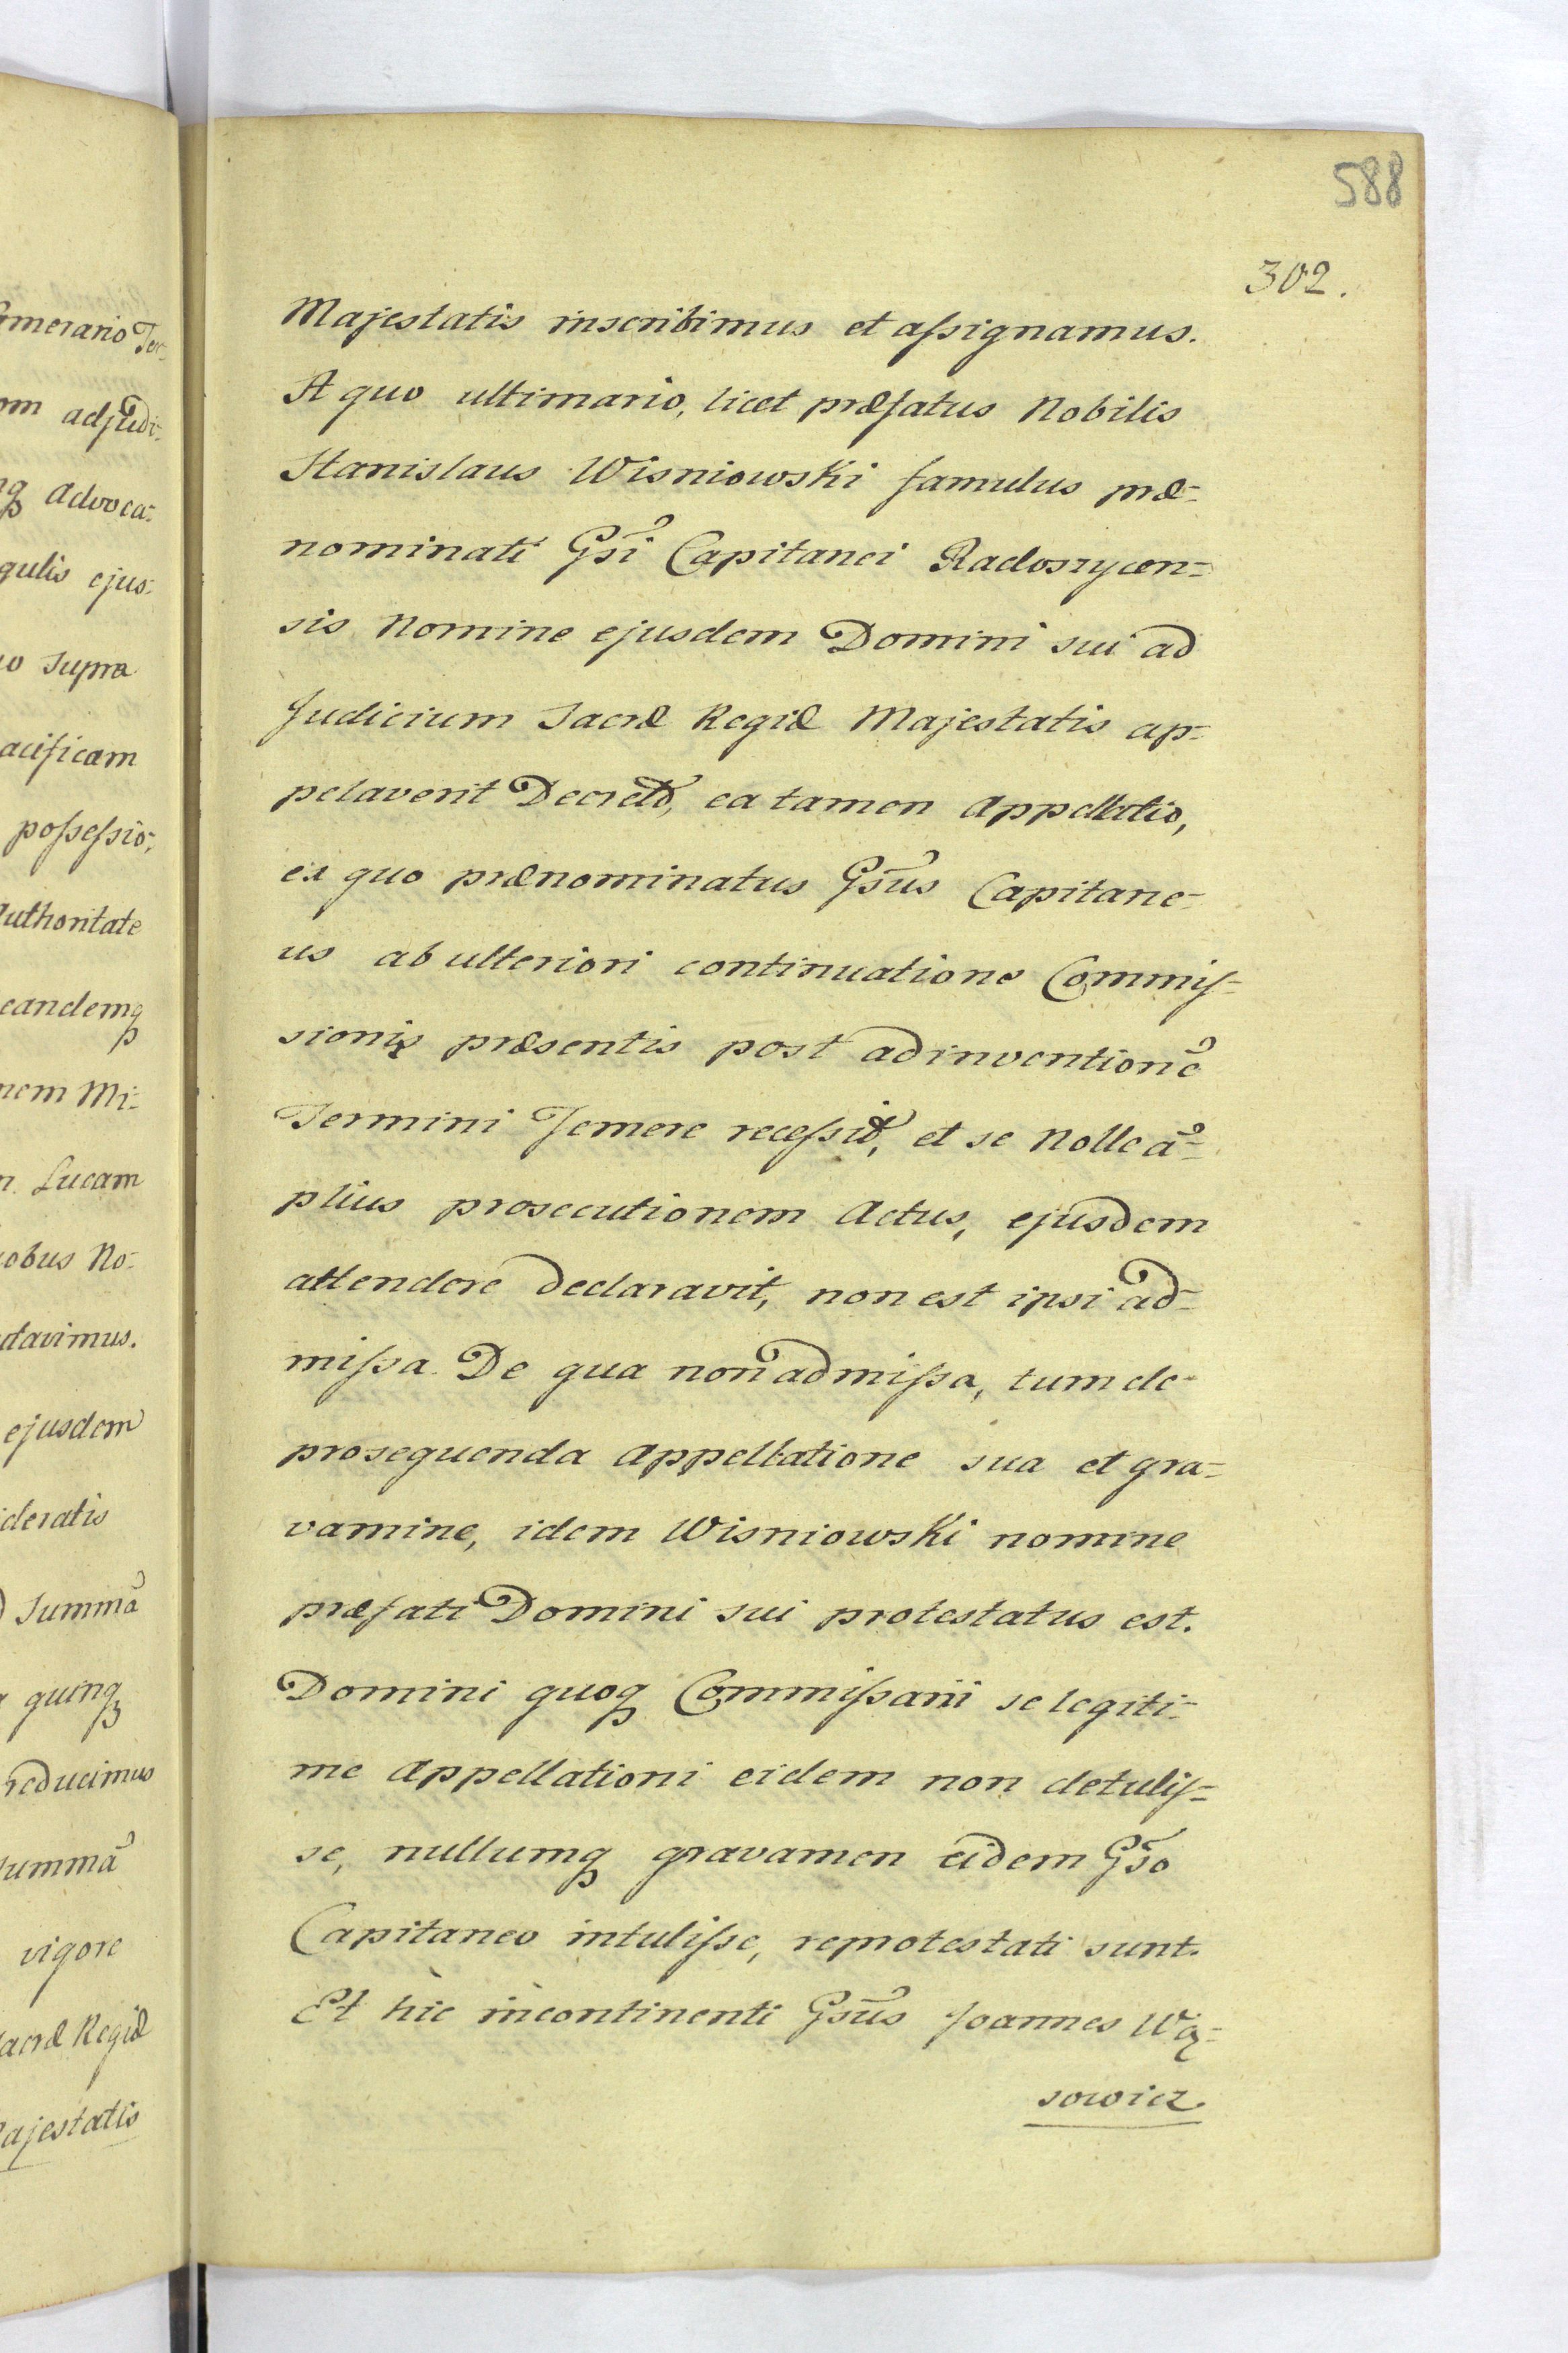 588
302.
Majestatis inscribimus et aſsignamus.
A quo ultimario, licet præfatus Nobilis
Stanislaus Wisniowski famulus præ-
nominati Gs̃i Capitanei Radoszycen-
sis Nomine ejusdem Domini sui ad
Judicium Sacræ Regiæ Majestatis ap-
pelaverit Decreto, ea tamen Appellatio,
ex quo prænominatus Gsũs Capitane-
us ab ulteriori continuatione Commiſ-
sionis præsentis post adinventionẽ
Termini Temere receſsit, et se Nolle ã-
plius prosecutionem Actus, ejusdem
attendere declaravit, non est ipsi ad-
miſsa. De qua non admiſsa, tum de
prosequenda Appellatione sua et gra-
vamine, idem Wisniowski nomine
præfati Domini sui protestatus est.
Domini quoq Commiſsarii se legiti-
me Appellationi eidem non detuliſ-
se, nullumq gravamen eidem Gs̃o
Capitaneo intuliſse, reprotestati sunt.
Et hic incontinenti Gsũs Joannes Wą-
sowicz
merario Ter-
om adjudi-
Advoca-
gulis ejus-
Supra
acificam
poſseſsio-
Authoritate
eandemq
nem Mi-
Lucam
No-
ejusdem
Summã
quinq
reducimus
Summã
vigore
Sacræ Regiæ
Majestatis